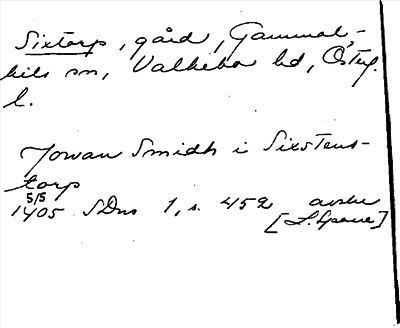 Sixtorp, gård, Gammal-
kils sn, Valkebo hd, Östg.
l.
Jowan Smidh i Sixstens-
torp
5/5
1405 SDns 1, s. 452 avskr